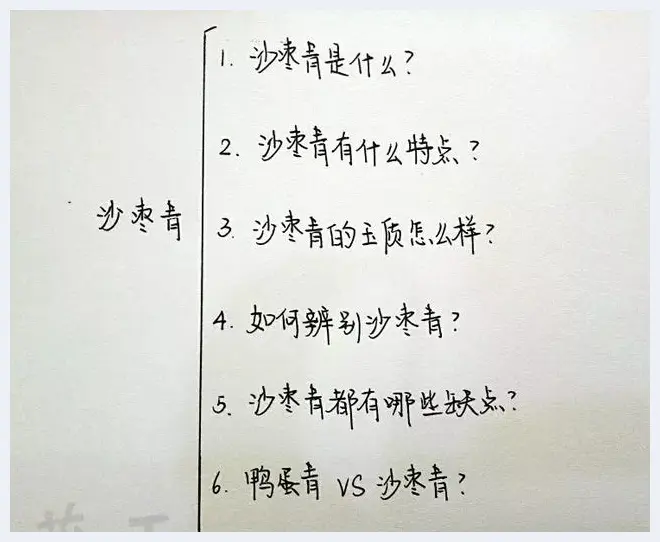 沙枣青
1. 沙枣青是什么?
2. 沙枣青有什么特点?
3. 沙枣青的玉质怎么样?
4. 如何辨别沙枣青?
5. 沙枣青都有哪些缺点?
6. 鸭蛋青 VS 沙枣青?